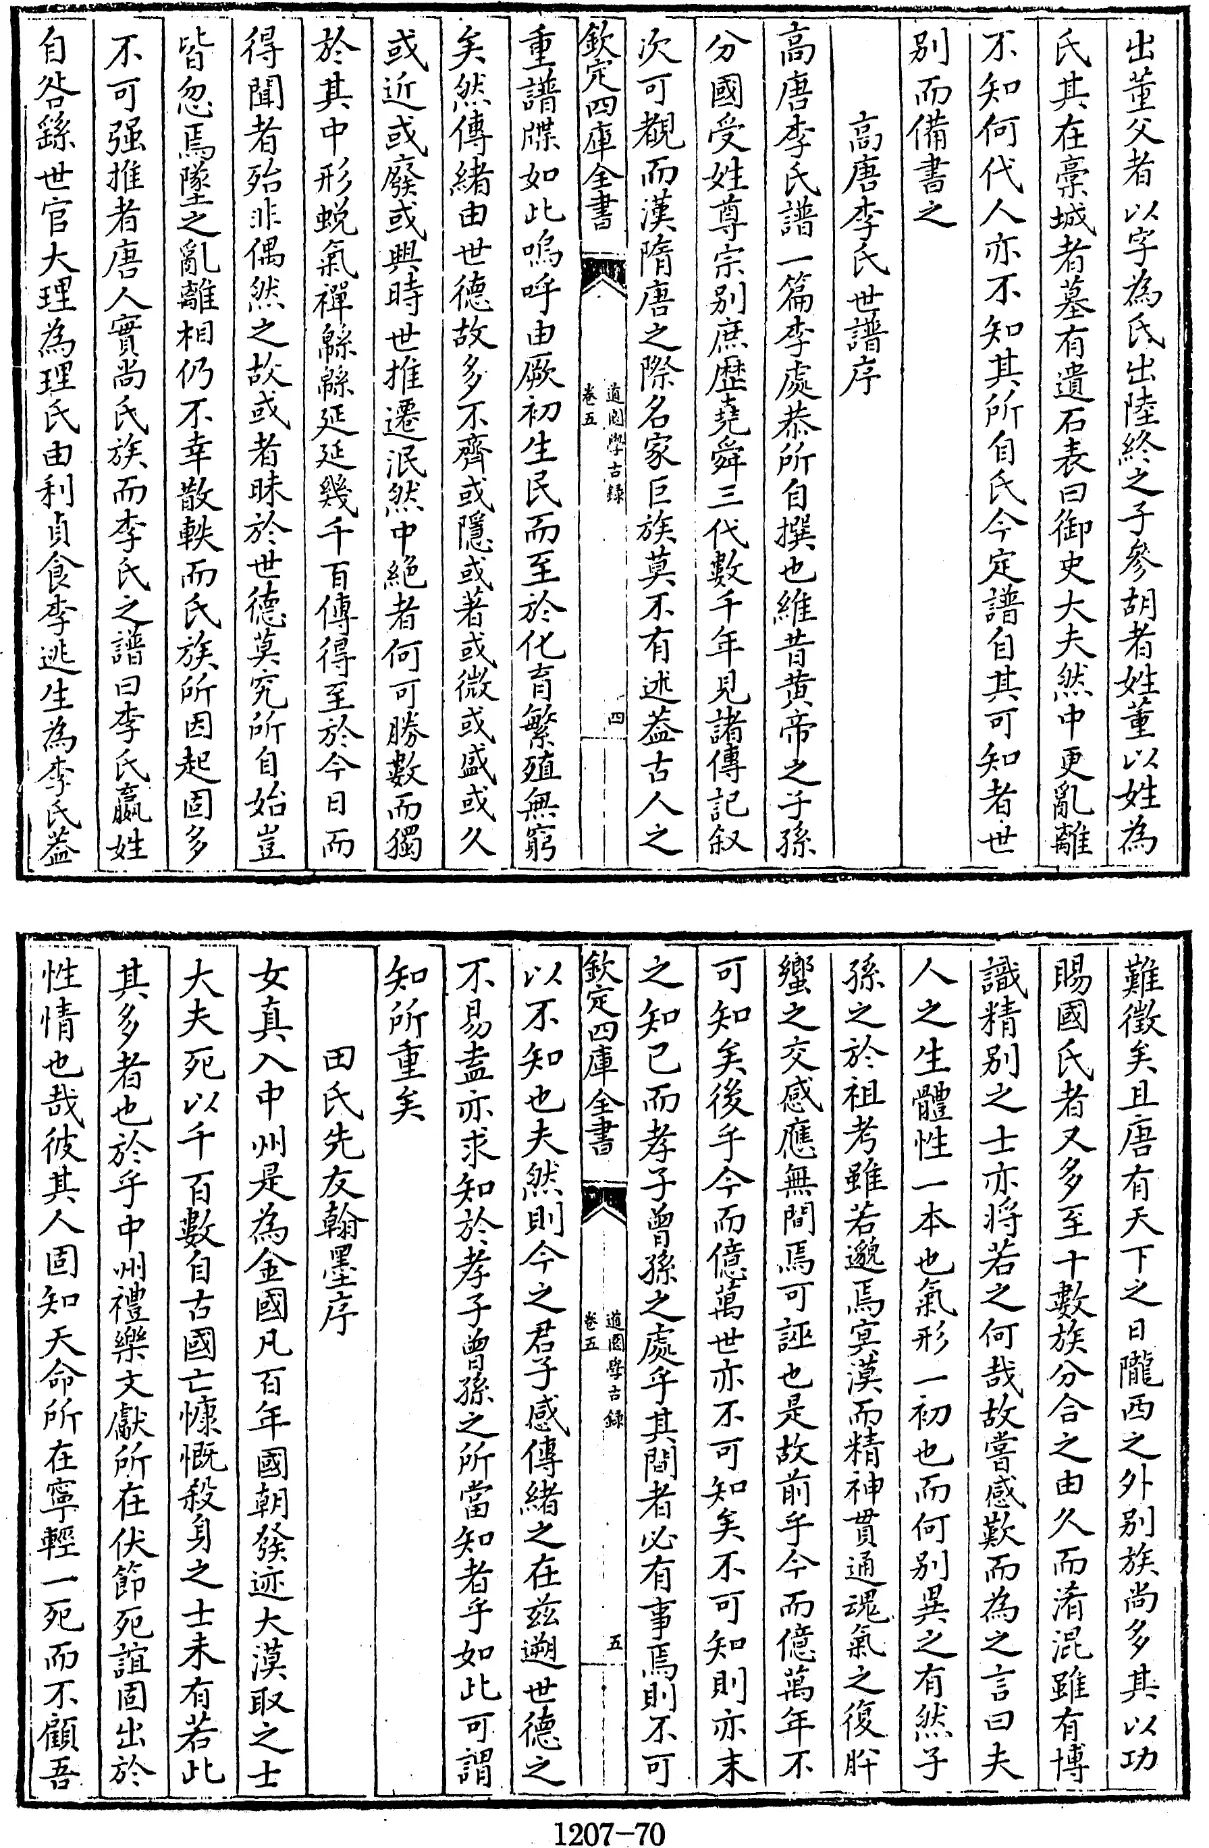 出董父者以字為氏出陸終之子參胡者姓董以姓為
氏其在藁城者墓有遺石表曰御史大夫然中更亂離
不知何代人亦不知其所自氏今定譜自其可知者世
別而備書之
高唐李氏世譜序
高唐李氏譜一篇李處恭所自撰也維昔黄帝之子孫
分國受姓尊宗別庶歴堯舜三代數千年見諸傳記叙
次可觀而漢隋唐之際名家巨族莫不有述葢古人之
欽定四庫全書
道園學古録
卷五
四
重譜牒如此嗚呼由厥初生民而至於化育繁殖無窮
矣然傳緒由世德故多不齊或隱或著或微或盛或久
或近或廢或興時世推遷泯然中絶者何可勝數而獨
於其中形蜕氣禪緜緜延延幾千百傳得至於今日而
得聞者殆非偶然之故或者昧於世德莫究所自始豈
皆忽焉墜之亂離相仍不幸散軼而氏族所因起固多
不可强推者唐人實尚氏族而李氏之譜曰李氏嬴姓
自咎繇世官大理為理氏由利貞食李逃生為李氏葢
難徴矣且唐有天下之日隴西之外別族尚多其以功
賜國氏者又多至十數族分合之由久而淆混雖有博
識精別之士亦将若之何哉故嘗感歎而為之言曰夫
人之生體性一本也氣形一初也而何別異之有然子
孫之於祖考雖若邈焉冥漠而精神貫通魂氣之復肸
蠁之交感應無間焉可誣也是故前乎今而億萬年不
可知矣後乎今而億萬世亦不可知矣不可知則亦末
之知已而孝子曾孫之處乎其間者必有事焉則不可
欽定四庫全書
道園學古録
卷五
五
以不知也夫然則今之君子感傳緒之在兹遡世德之
不易盡亦求知於孝子曾孫之所當知者乎如此可謂
知所重矣
田氏先友翰墨序
女真入中州是為金國凡百年國朝發迹大漠取之士
大夫死以千百數自古國亡慷慨殺身之士未有若此
其多者也於乎中州禮樂文獻所在伏節死誼固出於
性情也哉彼其人固知天命所在寧輕一死而不顧吾
1207-70